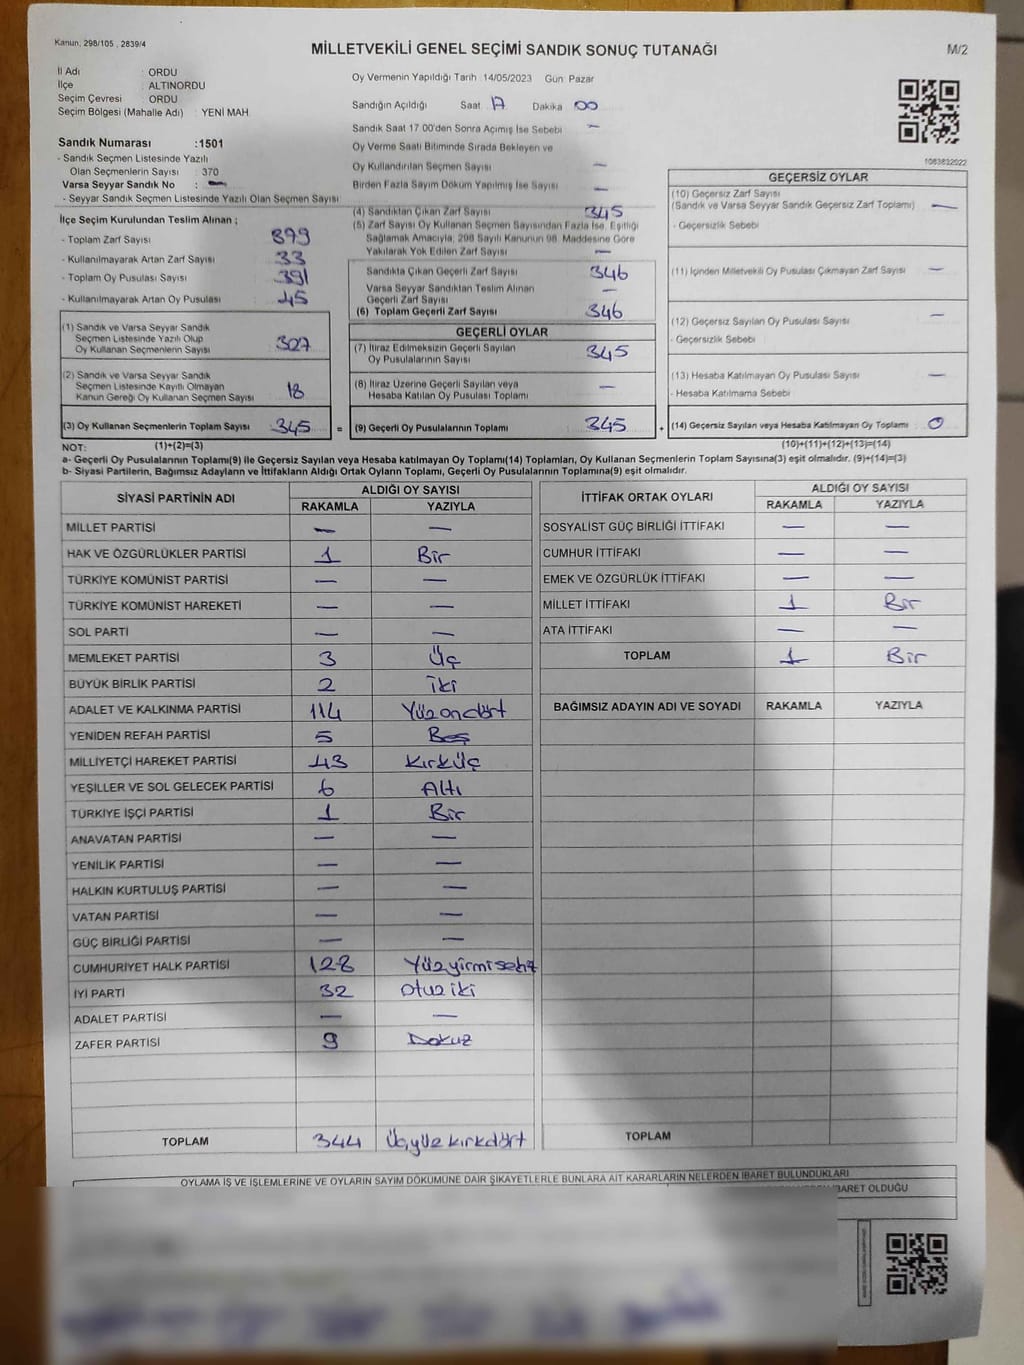 Kanun, 298/105 , 2839/4
MİLLETVEKİLİ GENEL SEÇİMİ SANDIK SONUÇ TUTANAĞI
M/2
İl Adı : ORDU
İlçe : ALTINORDU
Seçim Çevresi : ORDU
Seçim Bölgesi (Mahalle Adı) : YENİ MAH
Sandık Numarası :1501
- Sandık Seçmen Listesinde Yazılı
Olan Seçmenlerin Sayısı : 370
Varsa Seyyar Sandık No : —
- Seyyar Sandık Seçmen Listesinde Yazılı Olan Seçmen Sayısı
İlçe Seçim Kurulundan Teslim Alınan ;
- Toplam Zarf Sayısı 399
- Kullanılmayarak Artan Zarf Sayısı 33
- Toplam Oy Pusulası Sayısı 391
- Kullanılmayarak Artan Oy Pusulası 45
(1) Sandık ve Varsa Seyyar Sandık
Seçmen Listesinde Yazılı Olup
Oy Kullanan Seçmenlerin Sayısı 327
(2) Sandık ve Varsa Seyyar Sandık
Seçmen Listesinde Kayıtlı Olmayan
Kanun Gereği Oy Kullanan Seçmen Sayısı 18
(3) Oy Kullanan Seçmenlerin Toplam Sayısı 345 =
Oy Vermenin Yapıldığı Tarih 14/05/2023 Gün Pazar
Sandığın Açıldığı Saat 17 Dakika 00
Sandık Saat 17 00'den Sonra Açımış İse Sebebi —
Oy Verme Saati Bitiminde Sırada Bekleyen ve
Oy Kullandırılan Seçmen Sayısı —
Birden Fazla Sayım Döküm Yapılmış İse Sayısı —
(4) Sandıktan Çıkan Zarf Sayısı 345
(5) Zarf Sayısı Oy Kullanan Seçmen Sayısından Fazla İse, Eşitliği
Sağlamak Amacıyla, 298 Sayılı Kanunun 98. Maddesine Göre
Yakılarak Yok Edilen Zarf Sayısı —
Sandıkta Çıkan Geçerli Zarf Sayısı 346
Varsa Seyyar Sandıktan Teslim Alınan
Geçerli Zarf Sayısı —
(6) Toplam Geçerli Zarf Sayısı 346
GEÇERLİ OYLAR
(7) İtiraz Edilmeksizin Geçerli Sayılan
Oy Pusulalarının Sayısı 345
(8) İtiraz Üzerine Geçerli Sayılan veya
Hesaba Katılan Oy Pusulası Toplamı —
(9) Geçerli Oy Pusulalarının Toplamı 345 +
1083832022
GEÇERSİZ OYLAR
(10) Geçersiz Zarf Sayısı
(Sandık ve Varsa Seyyar Sandık Geçersiz Zarf Toplamı) —
- Geçersizlik Sebebi
(11) İçinden Milletvekili Oy Pusulası Çıkmayan Zarf Sayısı —
(12) Geçersiz Sayılan Oy Pusulası Sayısı —
- Geçersizlik Sebebi
(13) Hesaba Katılmayan Oy Pusulası Sayısı —
- Hesaba Katılmama Sebebi
(14) Geçersiz Sayılan veya Hesaba Katılmayan Oy Toplamı 0
NOT: (1)+(2)=(3) (10)+(11)+(12)+(13)=(14)
a- Geçerli Oy Pusulalarının Toplamı(9) ile Geçersiz Sayılan veya Hesaba katılmayan Oy Toplamı(14) Toplamları, Oy Kullanan Seçmenlerin Toplam Sayısına(3) eşit olmalıdır. (9)+(14)=(3)
b- Siyasi Partilerin, Bağımsız Adayların ve İttifakların Aldığı Ortak Oyların Toplamı, Geçerli Oy Pusulalarının Toplamına(9) eşit olmalıdır.
SİYASİ PARTİNİN ADI ALDIĞI OY SAYISI
RAKAMLA YAZIYLA
MİLLET PARTİSİ — —
HAK VE ÖZGÜRLÜKLER PARTİSİ 1 Bir
TÜRKİYE KOMÜNİST PARTİSİ — —
TÜRKİYE KOMÜNİST HAREKETİ — —
SOL PARTİ — —
MEMLEKET PARTİSİ 3 Üç
BÜYÜK BİRLİK PARTİSİ 2 İki
ADALET VE KALKINMA PARTİSİ 114 Yüzondört
YENİDEN REFAH PARTİSİ 5 Beş
MİLLİYETÇİ HAREKET PARTİSİ 43 Kırküç
YEŞİLLER VE SOL GELECEK PARTİSİ 6 Altı
TÜRKİYE İŞÇİ PARTİSİ 1 Bir
ANAVATAN PARTİSİ — —
YENİLİK PARTİSİ — —
HALKIN KURTULUŞ PARTİSİ — —
VATAN PARTİSİ — —
GÜÇ BİRLİĞİ PARTİSİ — —
CUMHURİYET HALK PARTİSİ 128 Yüzyirmisekiz
İYİ PARTİ 32 Otuziki
ADALET PARTİSİ — —
ZAFER PARTİSİ 9 Dokuz
TOPLAM 344 Üçyüzkırkdört
İTTİFAK ORTAK OYLARI ALDIĞI OY SAYISI
RAKAMLA YAZIYLA
SOSYALİST GÜÇ BİRLİĞİ İTTİFAKI — —
CUMHUR İTTİFAKI — —
EMEK VE ÖZGÜRLÜK İTTİFAKI — —
MİLLET İTTİFAKI 1 Bir
ATA İTTİFAKI — —
TOPLAM 1 Bir
BAĞIMSIZ ADAYIN ADI VE SOYADI RAKAMLA YAZIYLA
TOPLAM
OYLAMA İŞ VE İŞLEMLERİNE VE OYLARIN SAYIM DÖKÜMÜNE DAİR ŞİKAYETLERLE BUNLARA AİT KARARLARIN NELERDEN İBARET BULUNDUKLARI
İBARET OLDUĞU